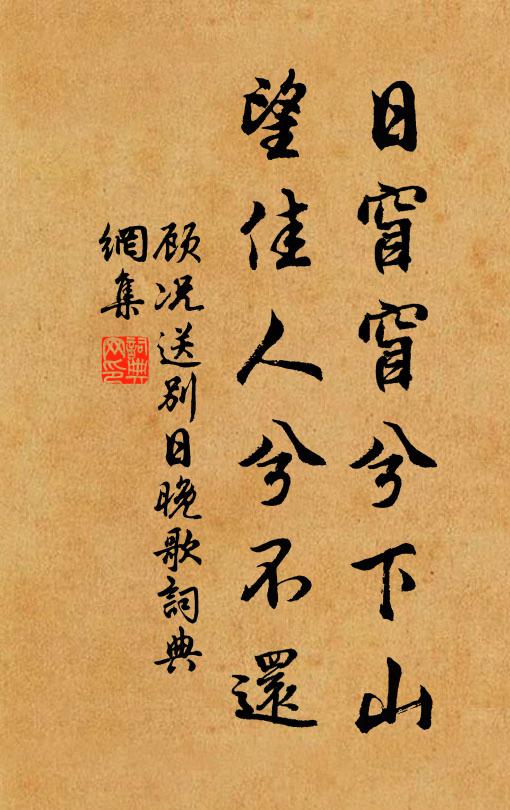 日窅窅兮下山
望佳人兮不還
顾况送别日晚歌詞典
網集
詞典
网印